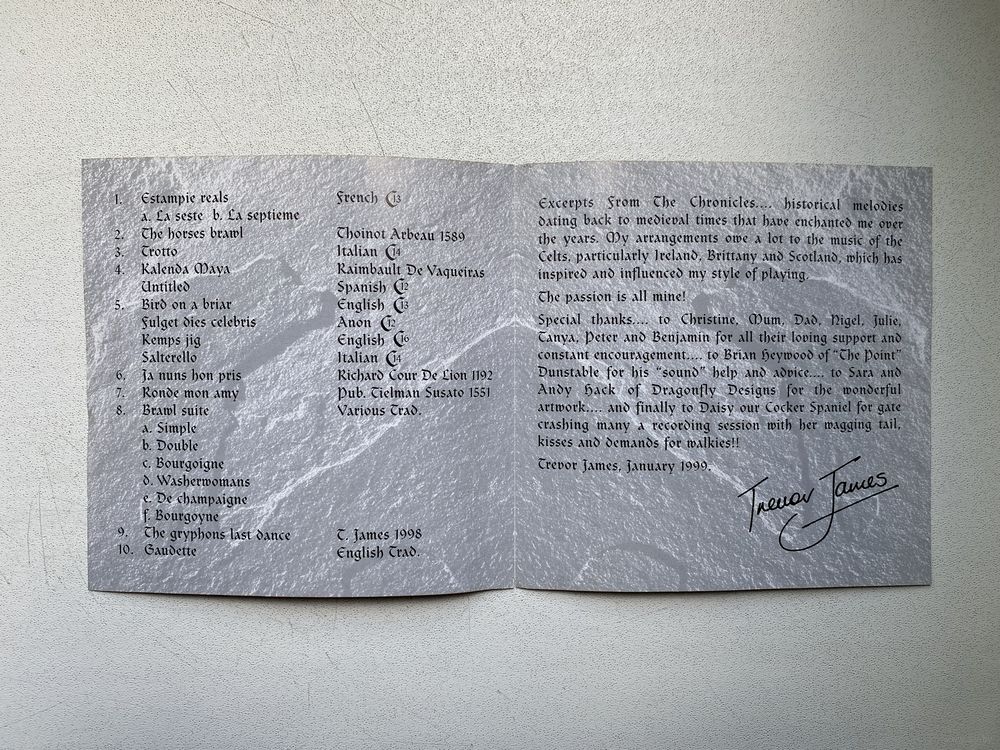 1. Estampie reals French C13
a. La seste b. La septieme
2. The horses brawl Thoinot Arbeau 1589
3. Trotto Italian C14
4. Kalenda Maya Raimbault De Vaqueiras
Untitled Spanish C12
5. Bird on a briar English C13
Fulget dies celebris Anon C12
Kemps jig English C16
Salterello Italian C14
6. Ja nuns hon pris Richard Cour De Lion 1192
7. Ronde mon amy Pub. Tielman Susato 1551
8. Brawl suite Various Trad.
a. Simple
b. Double
c. Bourgoigne
d. Washerwomans
e. De champaigne
f. Bourgoyne
9. The gryphons last dance T. James 1998
10. Gaudette English Trad.
Excerpts From The Chronicles.... historical melodies
dating back to medieval times that have enchanted me over
the years. My arrangements owe a lot to the music of the
Celts, particularly Ireland, Brittany and Scotland, which has
inspired and influenced my style of playing.
The passion is all mine!
Special thanks.... to Christine, Mum, Dad, Nigel, Julie,
Tanya, Peter and Benjamin for all their loving support and
constant encouragement.... to Brian Heywood of "The Point"
Dunstable for his "sound" help and advice.... to Sara and
Andy Hack of Dragonfly Designs for the wonderful
artwork.... and finally to Daisy our Cocker Spaniel for gate
crashing many a recording session with her wagging tail,
kisses and demands for walkies!!
Trevor James, January 1999.
Trevor James